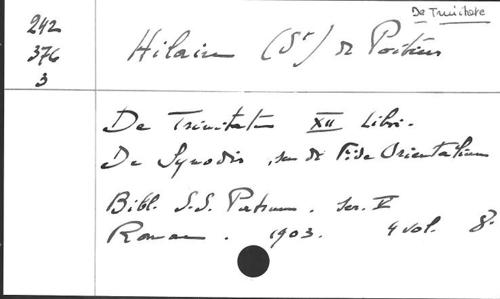 De Trinitate
242
376
3
Hilaire (St) de Poitiers
De Trinitate XII Libri.
De Synodis, seu de Fide Orientalium
Bibl. S.S. Patrum. ser. V
Romae. 1903. 4 vol. 8.